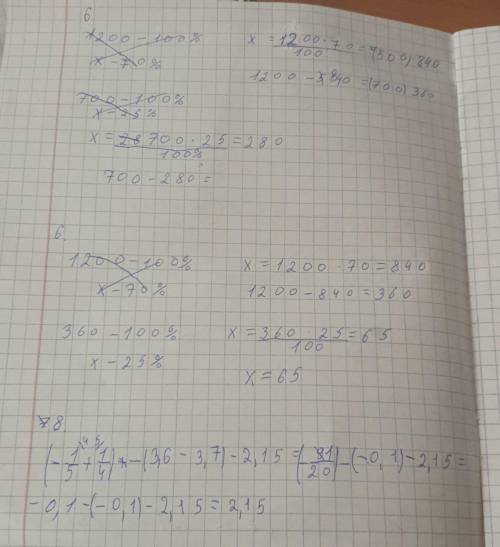 6.
1200 - 100%
x - 70%
x = 1200 · 70 / 100 = (500) 840
1200 - 840 = (700) 360
700 - 100%
x - 25%
x = 28700 · 25 / 100% = 280
700 - 280 =
6.
1200 - 100%
x - 70%
x = 1200 · 70 = 840
1200 - 840 = 360
360 - 100%
x - 25%
x = 360 · 25 / 100 = 65
x = 65
8
(-1/5 + 1/4) - (3,6 - 3,7) - 2,15 = (-1/20) - (-0,1) - 2,15 =
-0,1 - (-0,1) - 2,15 = 2,15